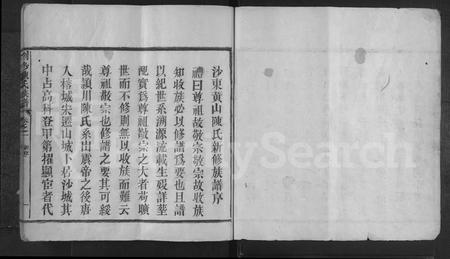 沙東黃山陳氏新修族譜序
禮曰尊祖故敬宗敬宗故收族
知收族必以修譜爲要也且譜
以紀世系溯源流載生歿詳塋
配實爲尊祖敬宗之大者苟曠
世而不修則無以收族而難云
尊祖敬宗也修譜之要其可緩
哉潁川陳氏系出虞帝之後唐
入 城 山城卜 沙城其
中占高科登甲第擢顯宦者代
MySearch